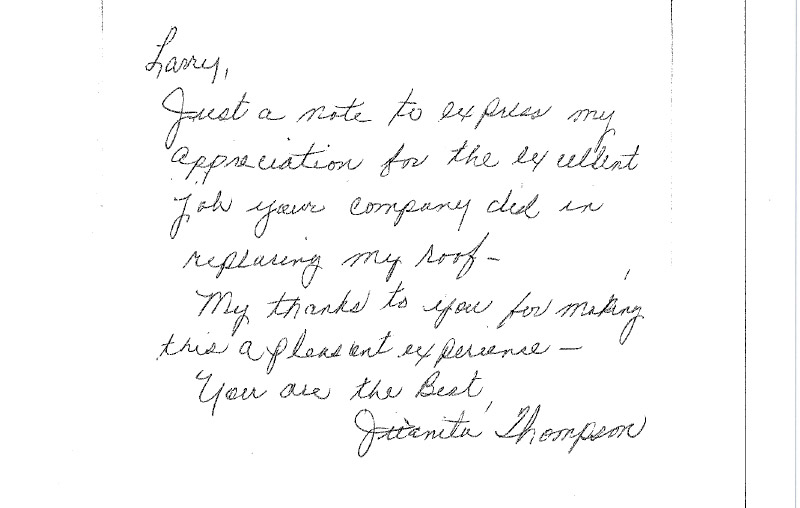 Larry,
Just a note to express my
appreciation for the excellent
job your company did in
replacing my roof –
My thanks to you for making
this a pleasant experience –
You are the Best,
Juanita Thompson